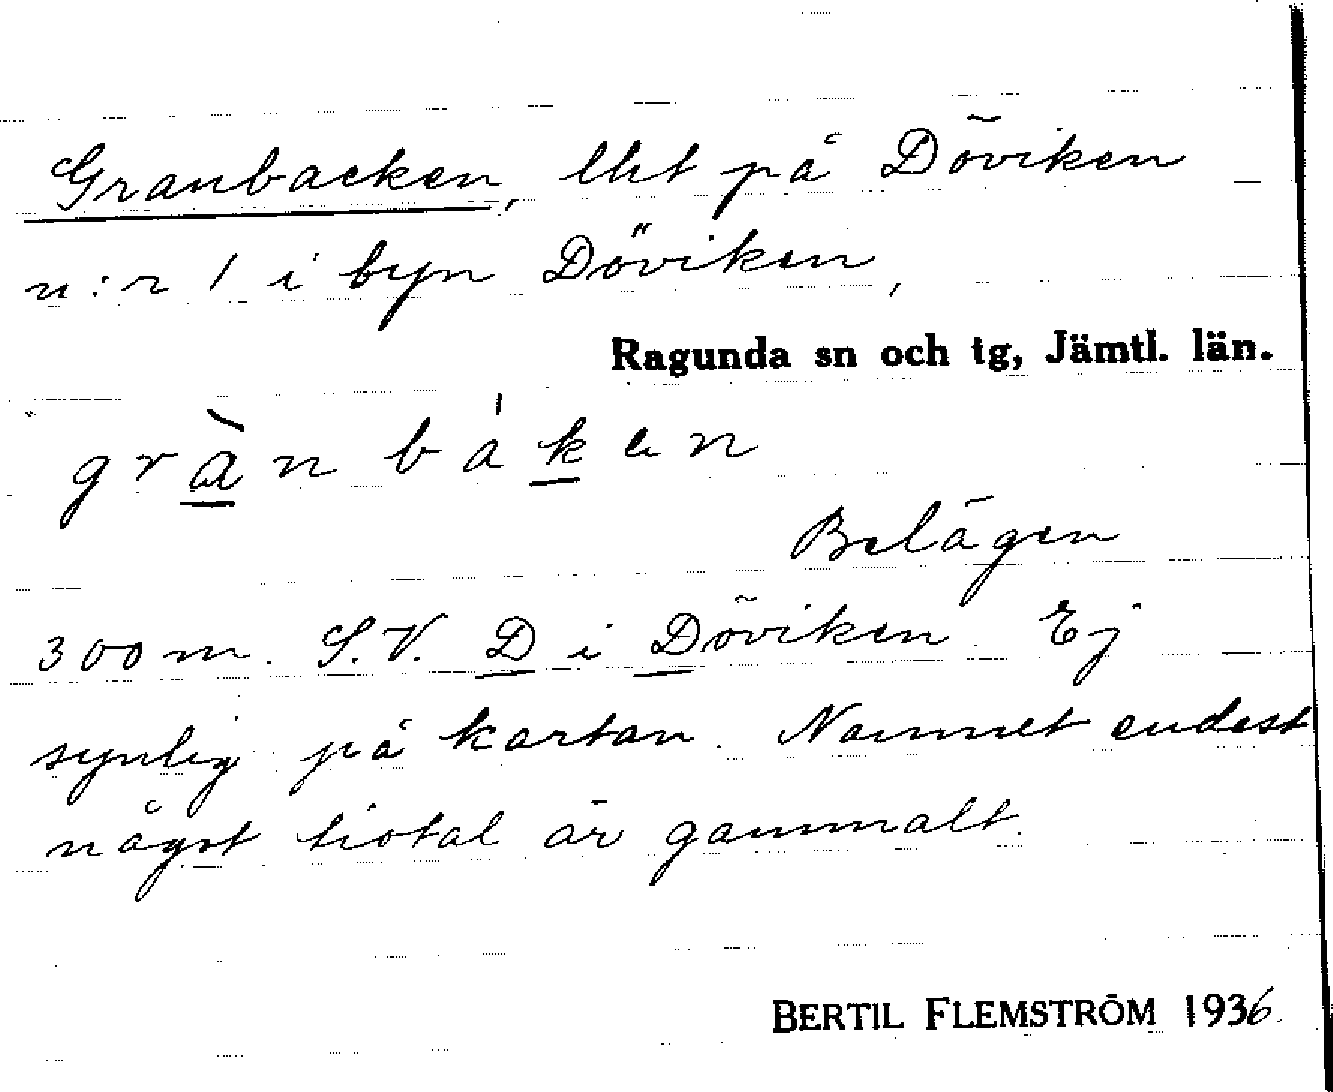 Granbacken, lht på Döviken
n:r 1 i byn Döviken,
Ragunda sn och tg, Jämtl. län.
gràn báken
Belägen
300 m. S.V. D i Döviken. Ej
synlig på kartan. Namnet endast
något tiotal år gammalt.
BERTIL FLEMSTRÖM 1936.